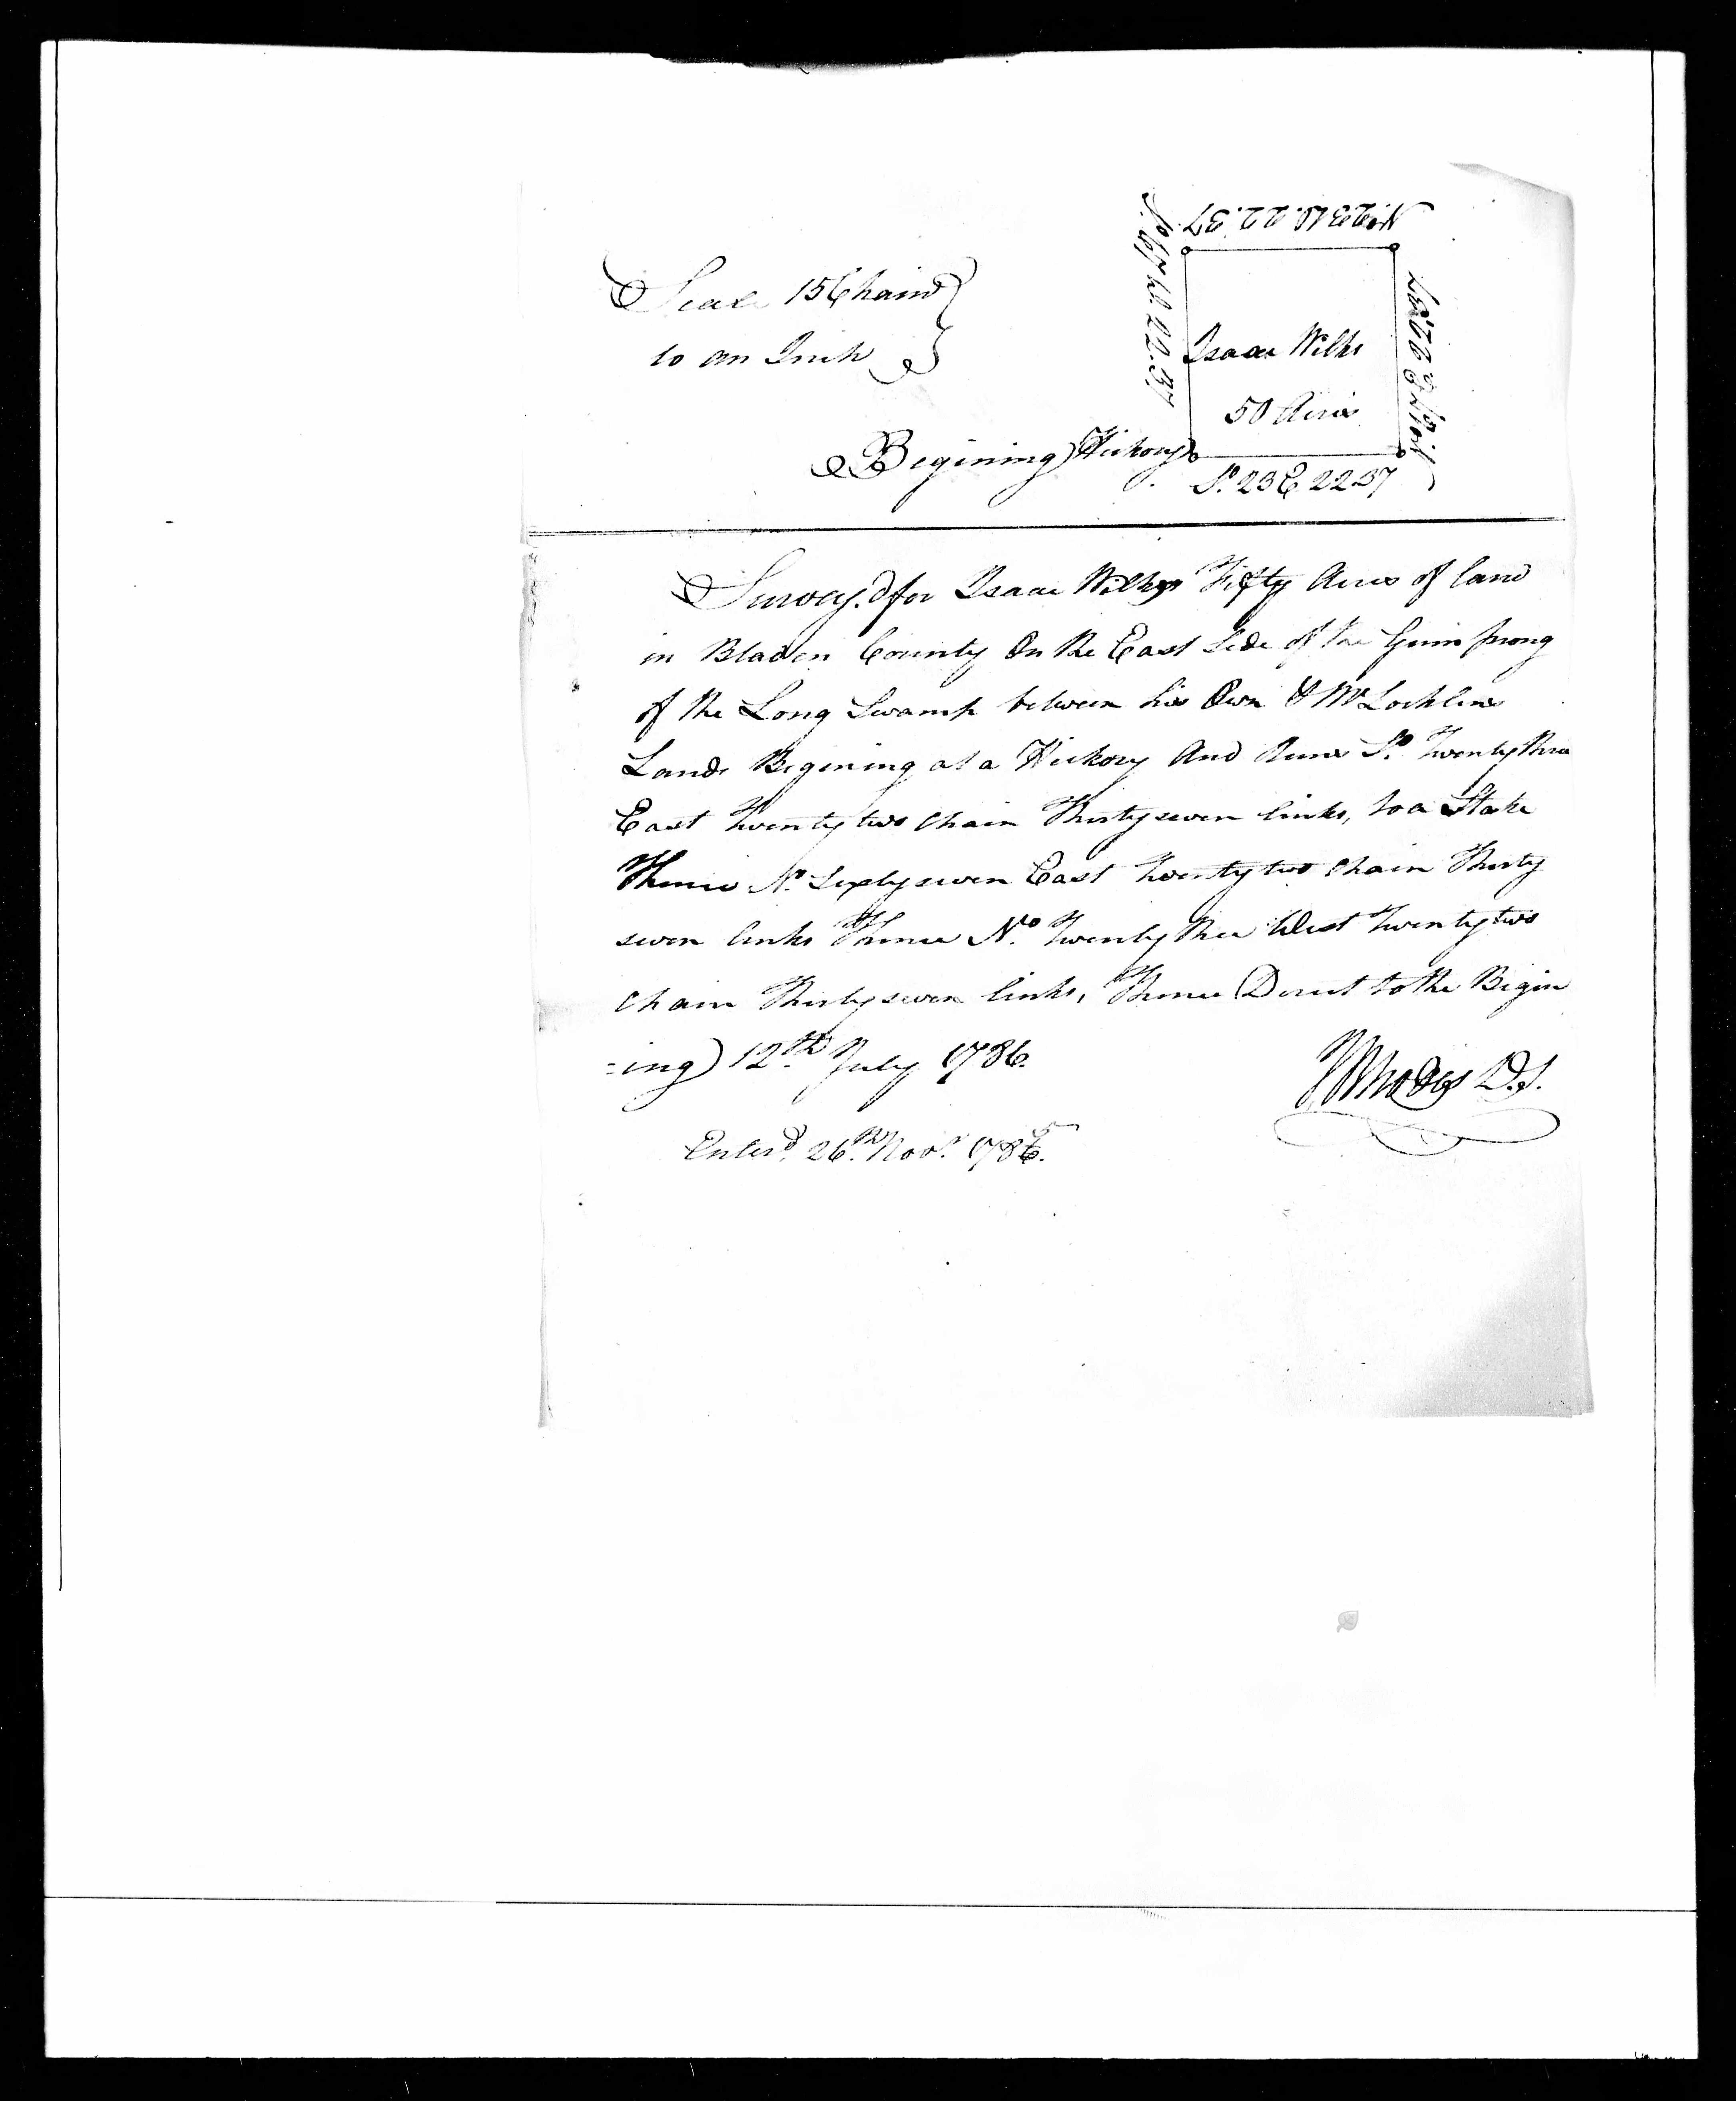 No. 23 W. 22.37
So. 67 W. 22.37
Scale 15 Chains
to an Inch
Isaac Wilks
50 Acres
No. 67 E. 22.37
Begining Hickory
So. 23 E 22.37
Survey.d for Isaac Wilks Fifty Acres of land
in Bladen County On the East Side of the Gum prong
of the Long Swamp between his Own & McLochlins
Lands Begining at a Hickory And Runs So. Twenty three
East Twenty two Chain Thirty seven links, to a Stake
Thence No. Sixty seven East Twenty two Chain Thirty
seven links Thence No. Twenty three West Twenty two
Chain Thirty seven links, Thence Direct to the Begin
=ing) 12.th July 1786.
Rhodes D.S.
Enter.d 26.th Nov.r